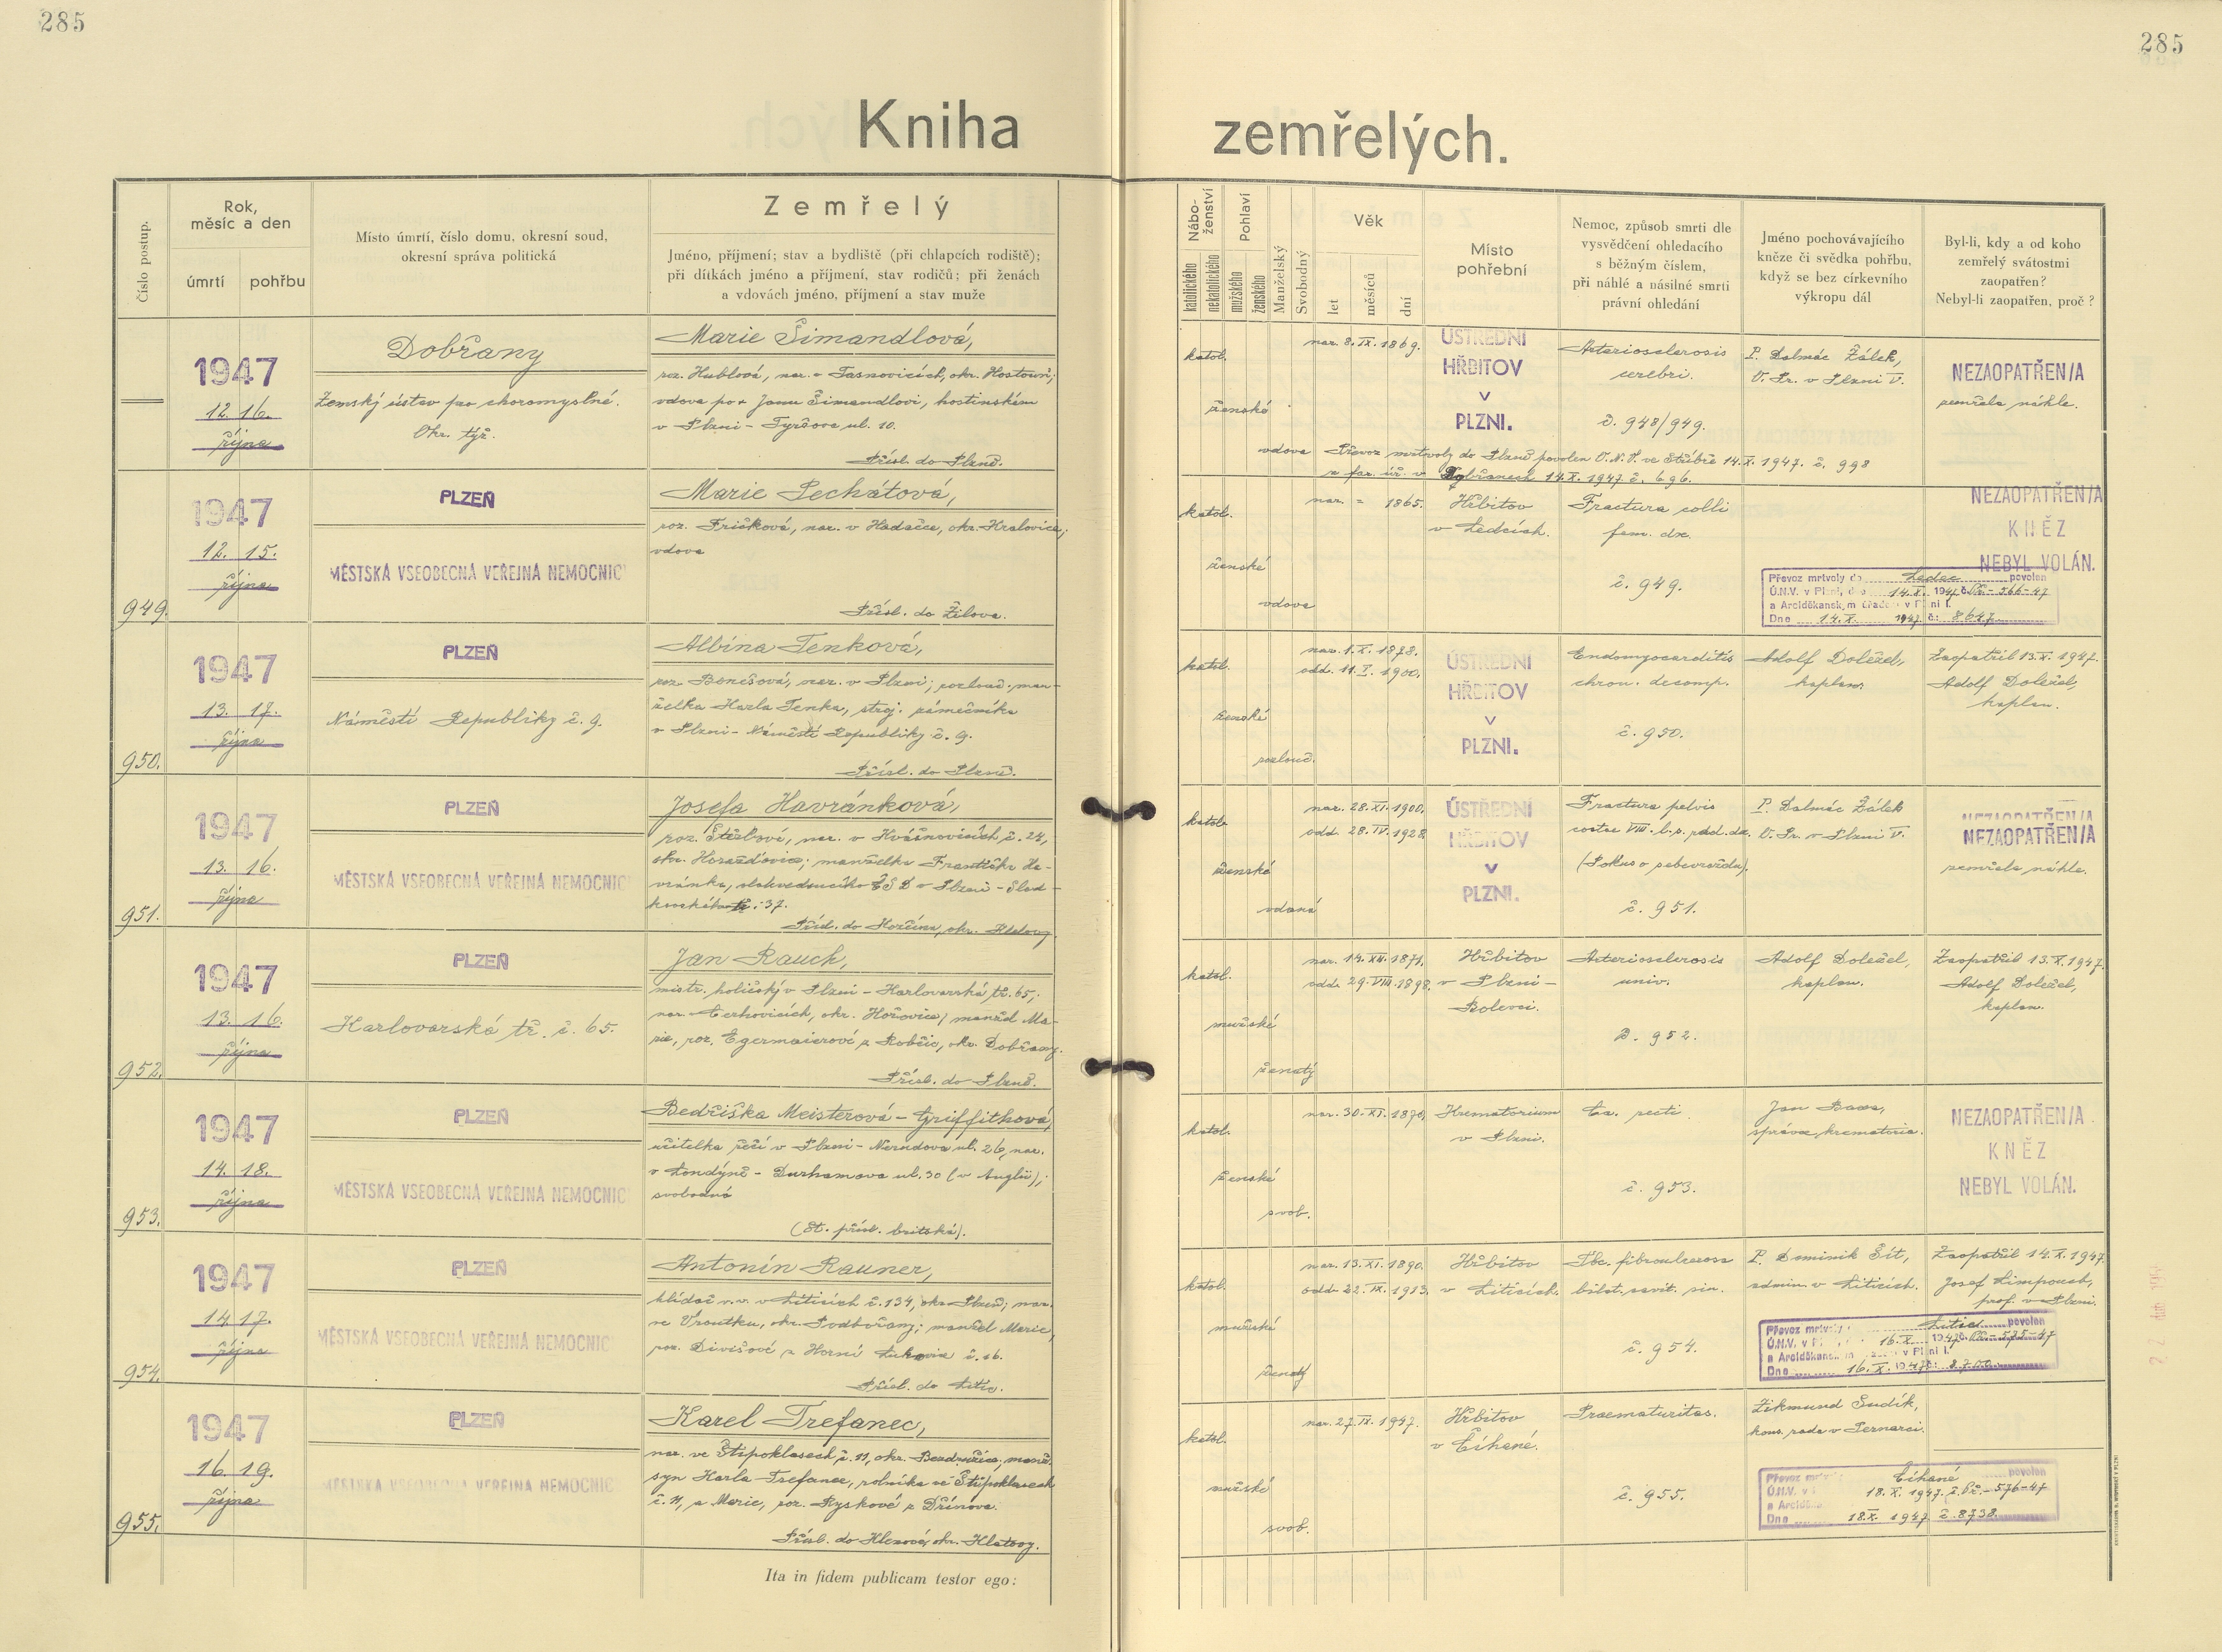 285
285
Kniha zemřelých.
Číslo postup.
Rok,
měsíc a den
úmrtí
pohřbu
Místo úmrtí, číslo domu, okresní soud,
okresní správa politická
Zemřelý
Jméno, příjmení; stav a bydliště (při chlapcích rodiště);
při dítkách jméno a příjmení, stav rodičů; při ženách
a vdovách jméno, příjmení a stav muže
Nábo-
ženství
katolického
nekatolického
Pohlaví
mužského
ženského
Manželský
Svobodný
Věk
let
měsíců
dní
Místo
pohřební
Nemoc, způsob smrti dle
vysvědčení ohledacího
s běžným číslem,
při náhlé a násilné smrti
právní ohledání
Jméno pochovávajícího
kněze či svědka pohřbu,
když se bez církevního
výkropu dál
Byl-li, kdy a od koho
zemřelý svátostmi
zaopatřen?
Nebyl-li zaopatřen, proč?
1947
12. 16.
října
Dobřany
Zemský ústav pro choromyslné.
Okr. týž.
Marie Šimandlová,
roz. Hublová, nar. v Tasnovicích, okr. Hostouň;
vdova po + Janu Šimandlovi, hostinském
v Plzni - Tyršova ul. 10.
Přísl. do Plzně.
katol.
ženské
vdova
nar. 8. IX. 1869.
ÚSTŘEDNÍ
HŘBITOV
v
PLZNI.
Arteriosclerosis
cerebri.
č. 948/949.
P. Dalmác Žálek,
V. Pr. v Plzni V.
NEZAOPATŘEN/A
zemřela náhle.
Převoz mrtvoly do Plzně povolen O.N.V. ve Stříbře 14.X. 1947. č. 998
a far. úř. v Dobřanech 14.X. 1947. č. 696.
949.
1947
12. 15.
října
PLZEŇ
MĚSTSKÁ VŠEOBECNÁ VEŘEJNÁ NEMOCNIC
Marie Pechátová,
roz. Fričková, nar. v Hadačce, okr. Kralovice;
vdova
Přísl. do Žilova.
katol.
ženské
vdova
nar. = 1865.
Hřbitov
v Ledcích.
Fractura colli
fem. dx.
č. 949.
NEZAOPATŘEN/A
KNĚZ
NEBYL VOLÁN.
Převoz mrtvoly do Ledec povolen
Ú.N.V. v Plzni, dne 14.X. 1947 č. Př.-566-47
a Arciděkansk,m úřadem v Plzni I.
Dne 14.X. 1947. č: 8647.
950.
1947
13. 17.
října
PLZEŇ
Náměstí Republiky č. 9.
Albína Tenková,
roz. Benešová, nar. v Plzni; rozlouč. man-
želka Karla Tenka, stroj. zámečníka
v Plzni - Náměstí Republiky č. 9.
Přísl. do Plzně.
katol.
ženské
rozlouč.
nar. 1. X. 1878.
odd. 11. I. 1900.
ÚSTŘEDNÍ
HŘBITOV
v
PLZNI.
Endomyocarditis
chron. decomp.
č. 950.
Adolf Doležel,
kaplan.
Zaopatřil 13.X. 1947.
Adolf Doležel,
kaplan.
951.
1947
13. 16.
října
PLZEŇ
MĚSTSKÁ VŠEOBECNÁ VEŘEJNÁ NEMOCNIC
Josefa Havránková,
nar. v č. 24,
okr. Horažďovice; manželka Františka Ha-
vránka, vlakvedoucího ČSD v Plzni - Slad-
37.
katol.
ženské
vdaná
nar. 28. XI. 1900.
odd. 28. IV. 1928.
ÚSTŘEDNÍ
HŘBITOV
v
PLZNI.
Fractura pelvis
costae VIII.
(Pokus o sebevraždu).
č. 951.
P. Dalmác Žálek
V. Pr. v Plzni V.
NEZAOPATŘEN/A
zemřela náhle.
952.
1947
13. 16.
října
PLZEŇ
Karlovarská tř. č. 65.
Jan Rauch,
mistr. holičský v Plzni - Karlovarská tř. 65,
nar. v Cerhovicích, okr. Hořovice; manžel Ma-
rie, roz. Egermaierové z Robčic, okr. Dobřany.
Přísl. do Plzně.
katol.
mužské
ženatý
nar. 14. XII. 1871.
odd. 29. VIII. 1898.
Hřbitov
v Plzni -
Bolevci.
Arteriosclerosis
univ.
č. 952.
Adolf Doležel,
kaplan.
Zaopatřil 13.X. 1947.
Adolf Doležel,
kaplan.
953.
1947
14. 18.
října
PLZEŇ
MĚSTSKÁ VŠEOBECNÁ VEŘEJNÁ NEMOCNIC
Bedřiška Meisterová - Griffithová,
učitelka řečí v Plzni - Nerudova ul. 26, nar.
v Londýně - Durhamova ul. 30 (v Anglii);
svobodná
(St. přísl. britská).
katol.
ženské
svob.
nar. 30. XI. 1870.
Krematorium
v Plzni.
Ca. recti
č. 953.
Jan
správce krematoria.
NEZAOPATŘEN/A
KNĚZ
NEBYL VOLÁN.
954.
1947
14. 17.
října
PLZEŇ
MĚSTSKÁ VŠEOBECNÁ VEŘEJNÁ NEMOCNIC
Antonín Rauner,
hlídač v.v. v Liticích č. 134, okr. Plzeň; nar.
ve Vroutku, okr. Podbořany; manžel Marie,
roz. Divišové z Horní Lukavice č. 16.
Přísl. do Litic.
katol.
mužské
ženatý
nar. 13. XI. 1890.
odd. 22. IX. 1913.
Hřbitov
v Liticích.
Tbc. fibroulcerosa
bilat. cavit. sin.
č. 954.
P. Dominik Šít,
admin. v Liticích.
Zaopatřil 14.X. 1947.
Josef Limpouch,
prof. v Plzni.
Převoz mrtvoly Litic povolen
Ú.N.V. v Pl 16.X. 1947 č. Př.-575-47
a Arciděkansk,m úřadem v Plzni I.
Dne 16.X. 1947 č: 8700.
955.
1947
16. 19.
října
PLZEŇ
MĚSTSKÁ VŠEOBECNÁ VEŘEJNÁ NEMOCNIC
Karel Trefanec,
nar. ve Štipoklasech č. 11, okr. Bezdružice, manž.
syn Karla Trefance, rolníka ve Štipoklasech
č. 11, a Marie, roz. Ryskové z Dřínova.
Přísl. do Klenové, okr. Klatovy.
katol.
mužské
svob.
nar. 27. IX. 1947.
Hřbitov
v Číhané.
Praematuritas.
č. 955.
Zikmund Sudík,
kons. rada v Pernarci.
Převoz mrtv Číhané povolen
Ú.N.V. v 18.X. 1947. č. Př.-576-47
a Arcidě
Dne 18.X. 1947 č. 8738.
Ita in fidem publicam testor ego: